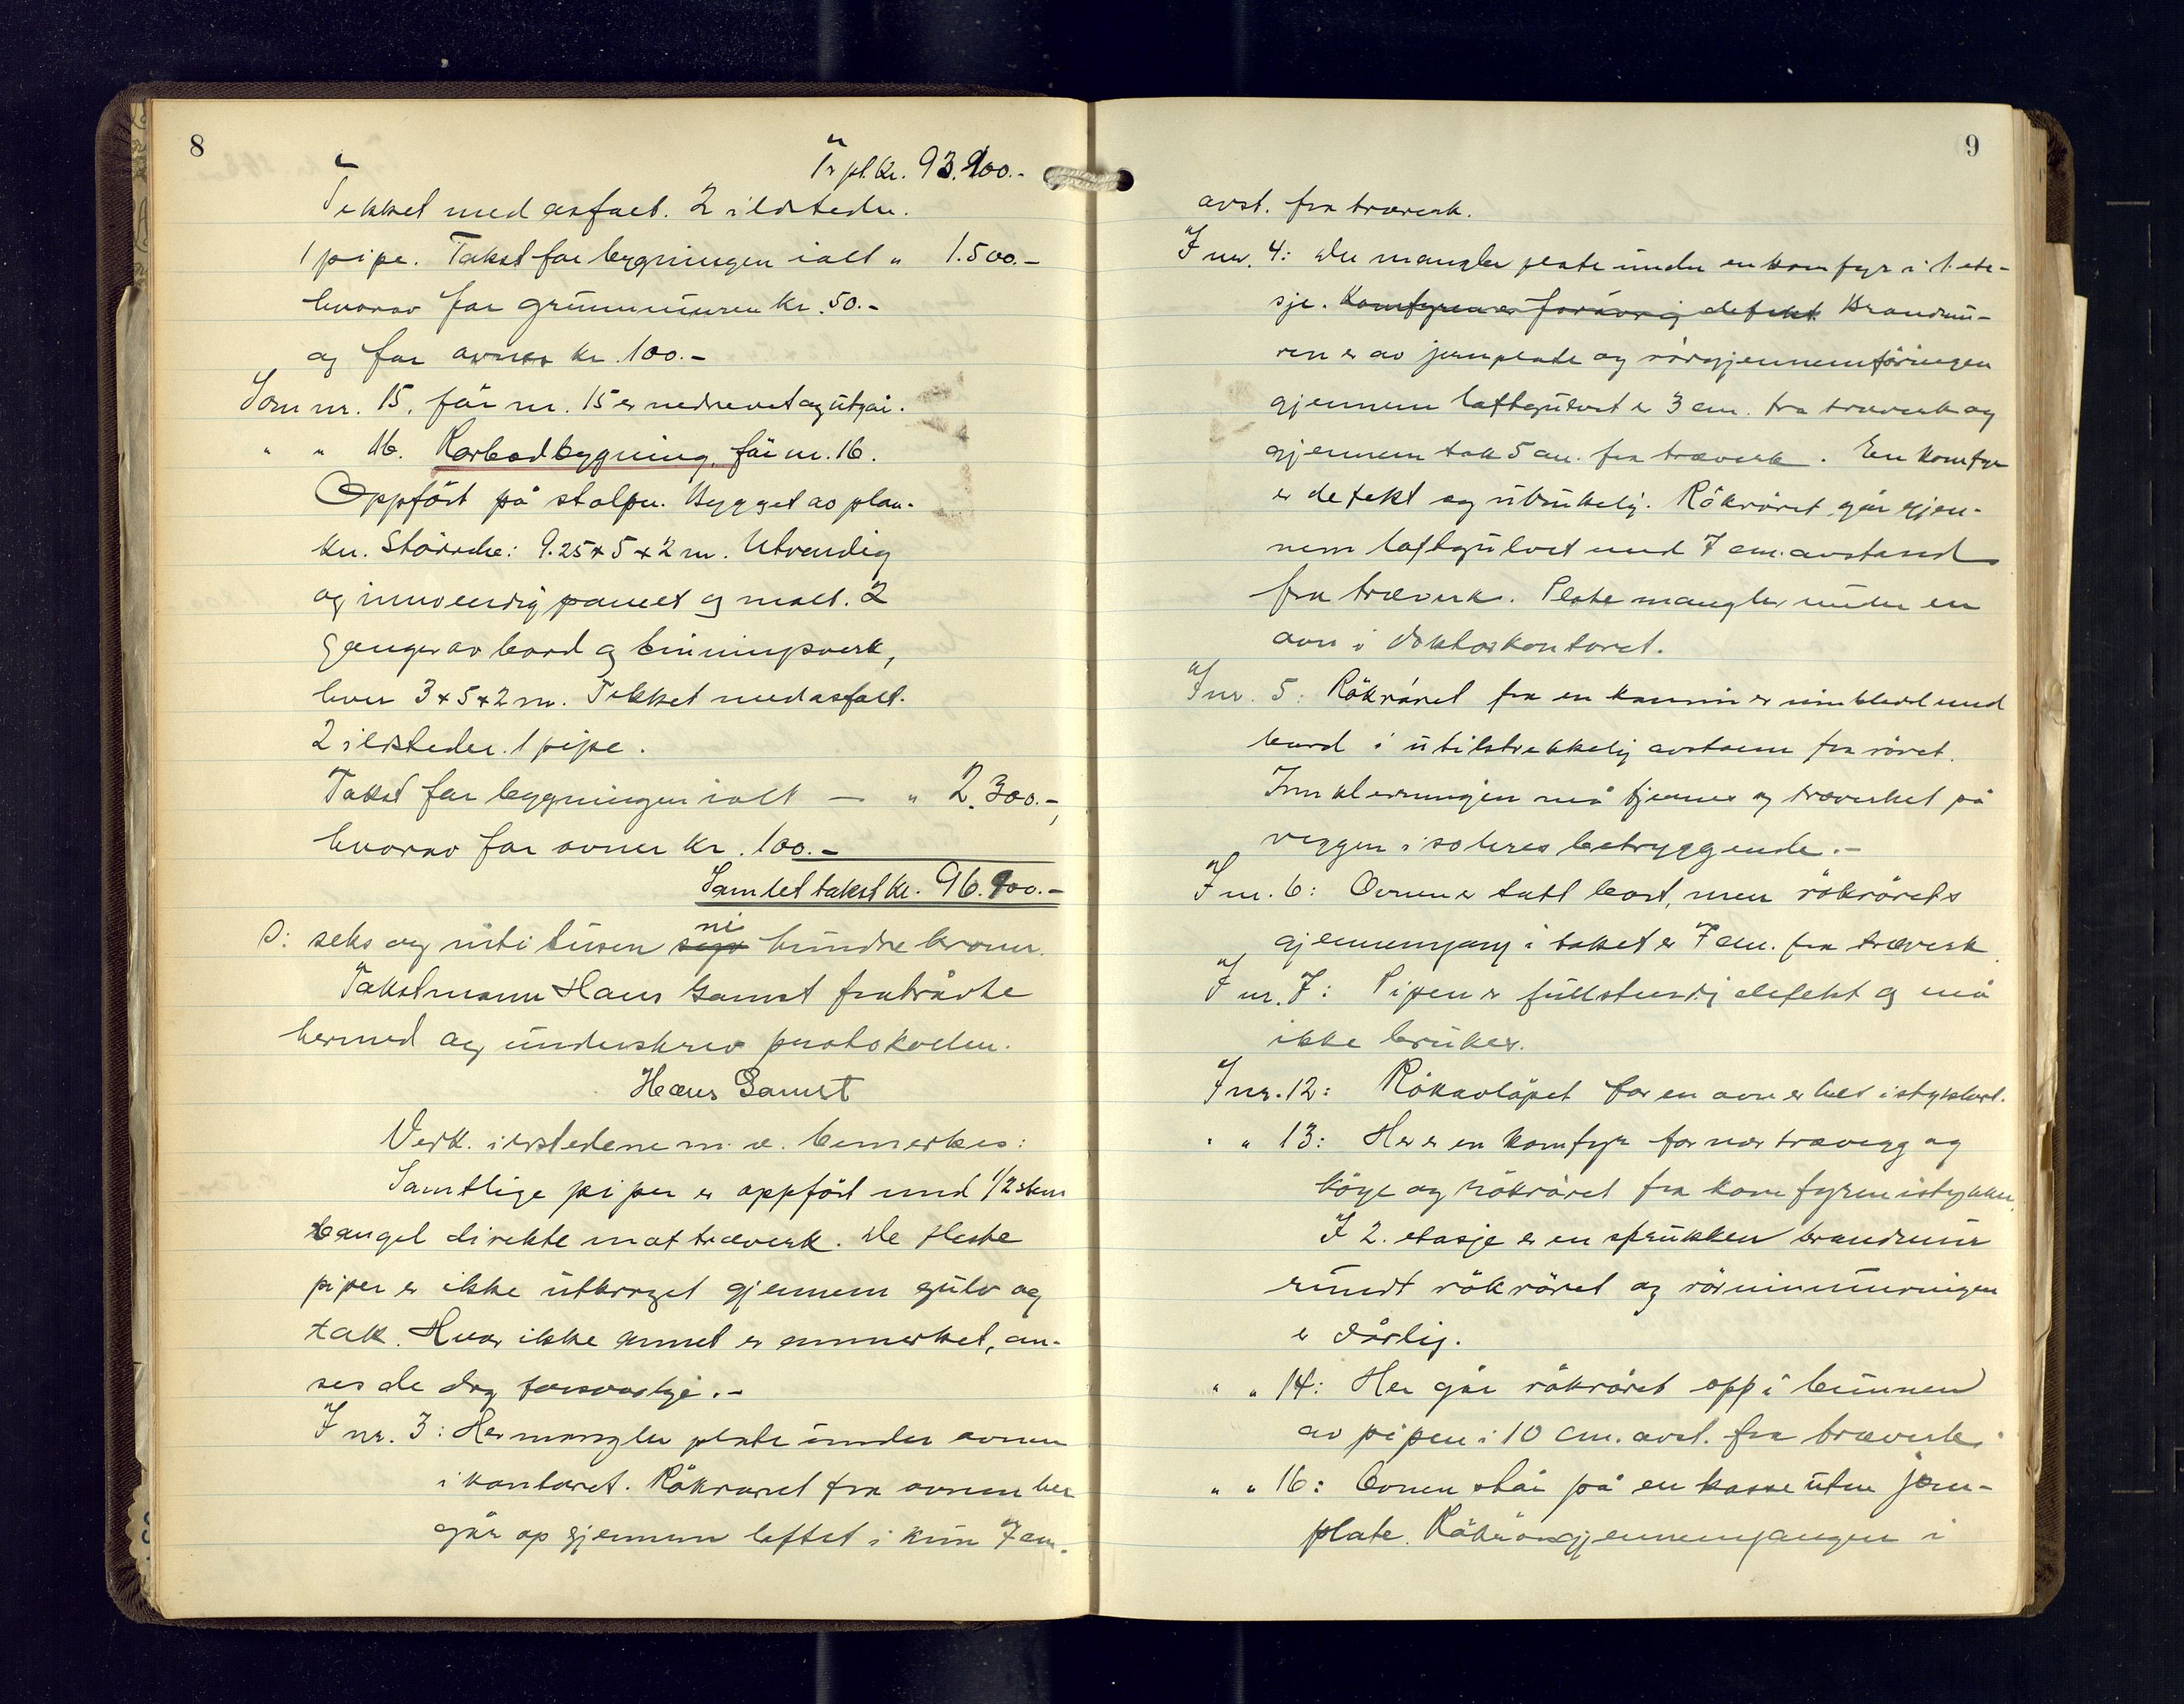 8
Tr. pl. kr. 93.900.-
Tekket med asfalt. 2 ildsteder.
1 pipe. Takst for bygningen ialt " 1.500.-
hvorav for grunnmuren kr. 50.-
og for ovner kr. 100.-
Som nr. 15, før nr. 15 er nedrevet og utgår.
" " 16. Karbadbygning, før nr. 16.
Oppført på stolper. Bygget av plan-
ker. Størrelse: 9.25 x 5 x 2 m. Utvendig
og innvendig panelt og malt. 2
ganger av bord og binningsverk,
hver 3 x 5 x 2 m. Tekket med asfalt.
2 ildsteder. 1 pipe.
Takst for bygningen ialt — " 2.300.-,
hvorav for ovner kr. 100.-
Samlet takst kr. 96.900.-
ni
ɔ: seks og nitti tusen hundre kroner.
Takstmann Hans Gamst fratrådte
hermed og underskrev protokollen.
Hans Gamst
Vedk. ildstedene m. v. bemerkes:
Samtlige piper er oppført med 1/2 stens
vanget direkte mot treverk. De fleste
piper er ikke utkraget gjennem gulv og
tak. Hvor ikke annet er anmerket, an-
ses de dog forsvarlige.-
I nr. 3: Her mangler plate under ovnen
i kontoret. Rökröret fra ovnen her
går op gjennem loftet i kun 7 cm.
9
avst. fra treverk.
I nr. 4: Der mangler plate under en komfyr i 1. eta-
sje. Komfyren er forøvrig defekt Brandmu-
ren er av jernplate og rörgjennemföringen
gjennem loftgulvet er 3 cm. fra treverk og
gjennem tak 5 cm. fra treverk. En komfyr
er defekt og ubrukelig. Rökröret går gjen-
nem loftgulvet med 7 cm. avstand
fra treverk. Plate mangler under en
ovn i doktorkontoret.
I nr. 5: Rökröret fra en kamin er innkledd med
bord i utilstrekkelig avstann fra röret.
Innkledningen må fjernes og treverket på
veggen isoleres betryggende.-
I nr. 6: Ovnen er tatt bort, men rökrörets
gjennemgang i taket er 7 cm. fra treverk.
I nr. 7: Pipen er fullstendig defekt og må
ikke brukes.
I nr. 12: Rökavløpet for en ovn er helt istykker.
" " 13: Her er en komfyr for nær trevegg og
böye og rökröret fra komfyren istykker.
I 2. etasje er en sprukken brandmur
rundt rökröret og rörinnmuringen
er dårlig.
" " 14: Her går rökröret opp i bunnen
av pipen i 10 cm. avst. fra treverk.
" " 16: Ovnen står på en kasse uten jern-
plate. Rökrörsgjennemgangen i